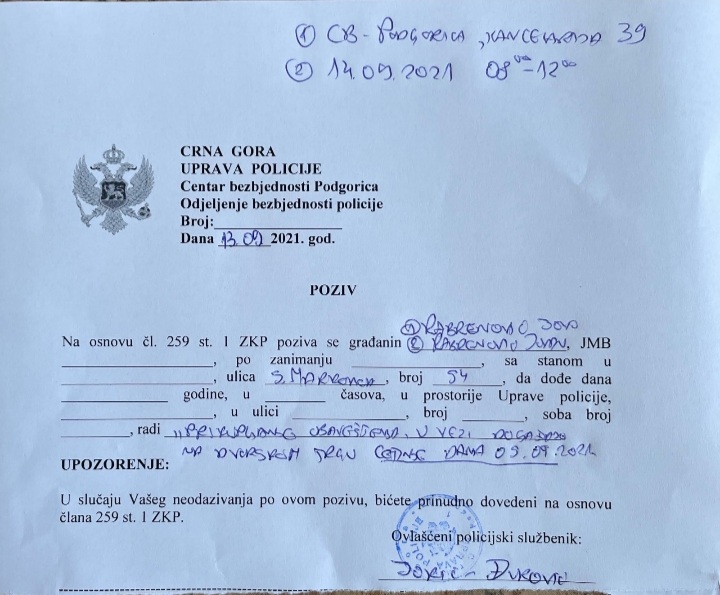 ① CB - PODGORICA, KANCELARIJA 39
② 14.09.2021 08⁰⁰-12⁰⁰
CRNA GORA
UPRAVA POLICIJE
Centar bezbjednosti Podgorica
Odjeljenje bezbjednosti policije
Broj:
Dana 13.09 2021. god.
POZIV
① RABRENOVIĆ
Na osnovu čl. 259 st. 1 ZKP poziva se građanin ② RABRENOVIĆ JOVAN, JMB
, po zanimanju , sa stanom u
, ulica S. MARKOVIĆA, broj 54, da dođe dana
godine, u časova, u prostorije Uprave policije,
, u ulici , broj , soba broj
, radi „PRIKUPLJANJE OBAVEŠTENJA, U VEZI DOGAĐAJA
NA DVORSKOM TRGU CETINJE DANA 05.09.2021.
UPOZORENJE:
U slučaju Vašeg neodazivanja po ovom pozivu, bićete prinudno dovedeni na osnovu
člana 259 st. 1 ZKP.
Ovlašćeni policijski službenik: